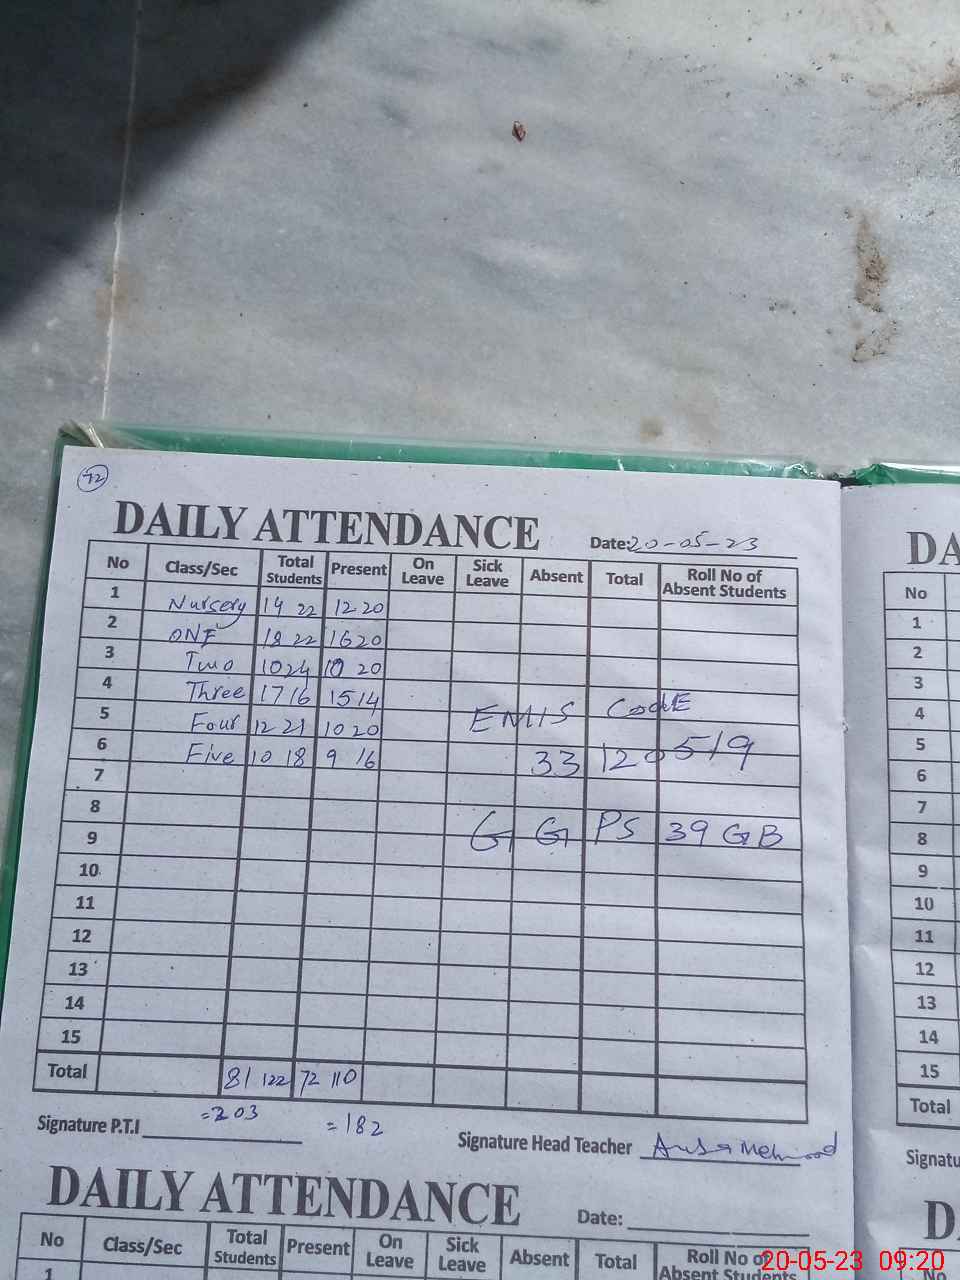 72
DAILY ATTENDANCE Date: 20-05-23
No Class/Sec Total Students Present On Leave Sick Leave Absent Total Roll No of Absent Students
1 Nursery 14 22 12 20
2 ONE 18 22 16 20
3 Two 10 24 10 20
4 Three 17 16 15 14
5 Four 12 21 10 20
6 Five 10 18 9 16
7
8
9
10
11
12
13
14
15
EMIS CodE
33 120519
G G PS 39 GB
Total 81 122 72 110
=203 =182
Signature P.T.I Signature Head Teacher
DAILY ATTENDANCE Date:
No Class/Sec Total Students Present On Leave Sick Leave Absent Total Roll No of Absent Students
1
DA
No
1
2
3
4
5
6
7
8
9
10
11
12
13
14
15
Total
Signatu
D
No
20-05-23 09:20